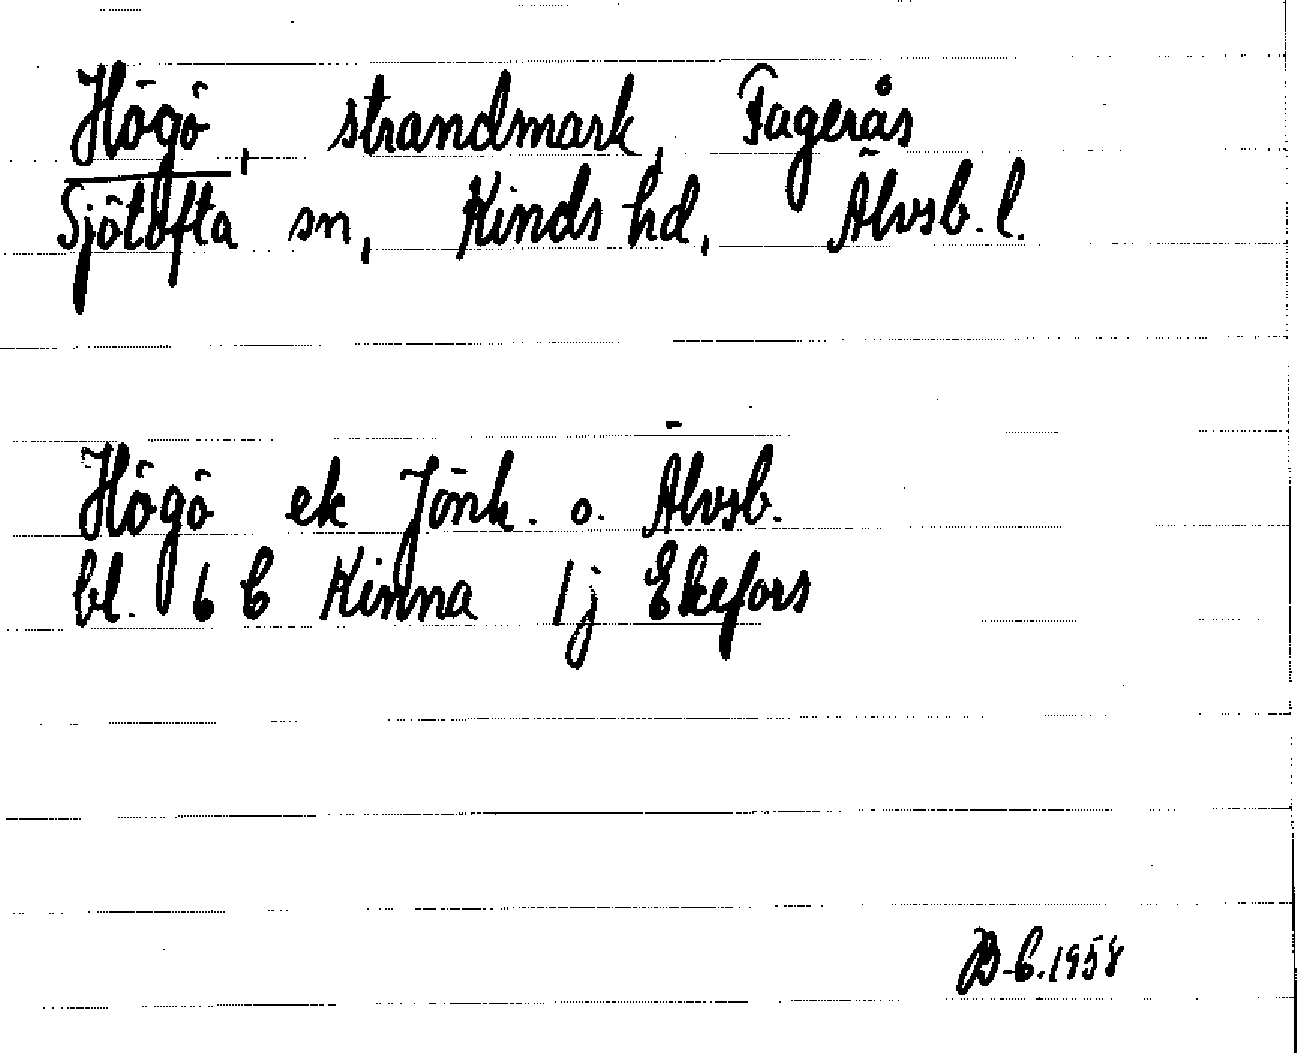 Högö, strandmark, Fagerås
Sjötofta sn, Kinds hd, Älvsb. l.
Högö ek Jönk. o. Älvsb.
bl. 6 C Kinna 1j Ekefors
B-C. 1958